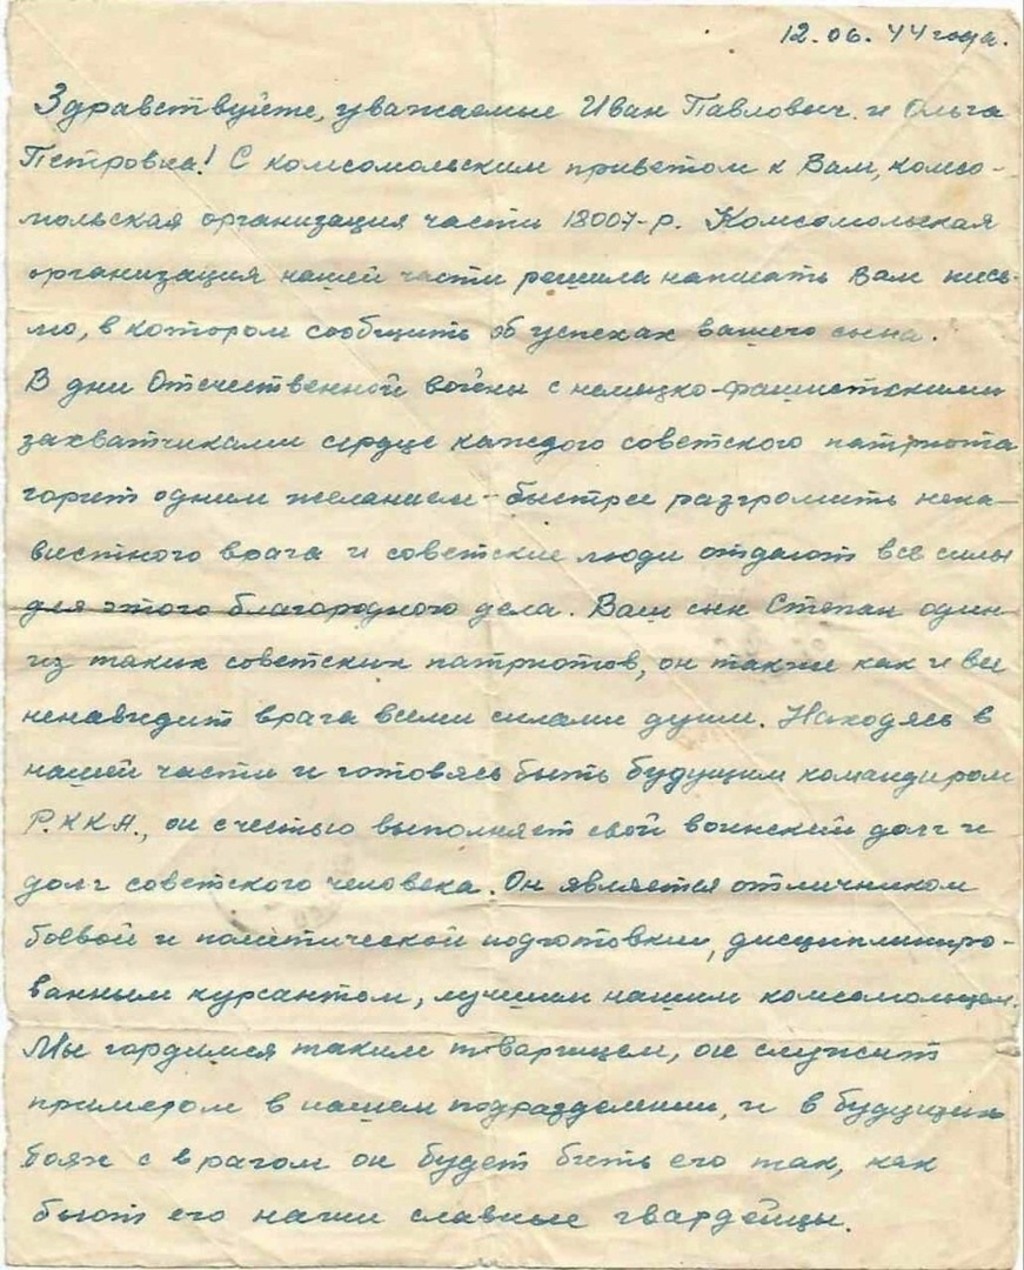 12.06.44 года.
Здравствуйте, уважаемые Иван Павлович и Ольга
Петровна! С комсомольским приветом к Вам, комсо-
мольская организация части 18007-р. Комсомольская
организация нашей части решила написать Вам пись-
мо, в котором сообщить об успехах вашего сына.
В дни Отечественной войны с немецко-фашистскими
захватчиками сердце каждого советского патриота
горит одним желанием - быстрее разгромить нена-
вистного врага и советские люди отдают все силы
для этого благородного дела. Ваш сын Степан один
из таких советских патриотов, он также как и все
ненавидит врага всеми силами души. Находясь в
нашей части и готовясь быть будущим командиром
Р.ККА., он с честью выполняет свой воинский долг и
долг советского человека. Он является отличником
боевой и политической подготовки, дисциплиниро-
ванным курсантом, лучшим нашим комсомольцем.
Мы гордимся таким товарищем, он служит
примером в нашем подразделении, и в будущих
боях с врагом он будет бить его так, как
бьют его наши славные гвардейцы.